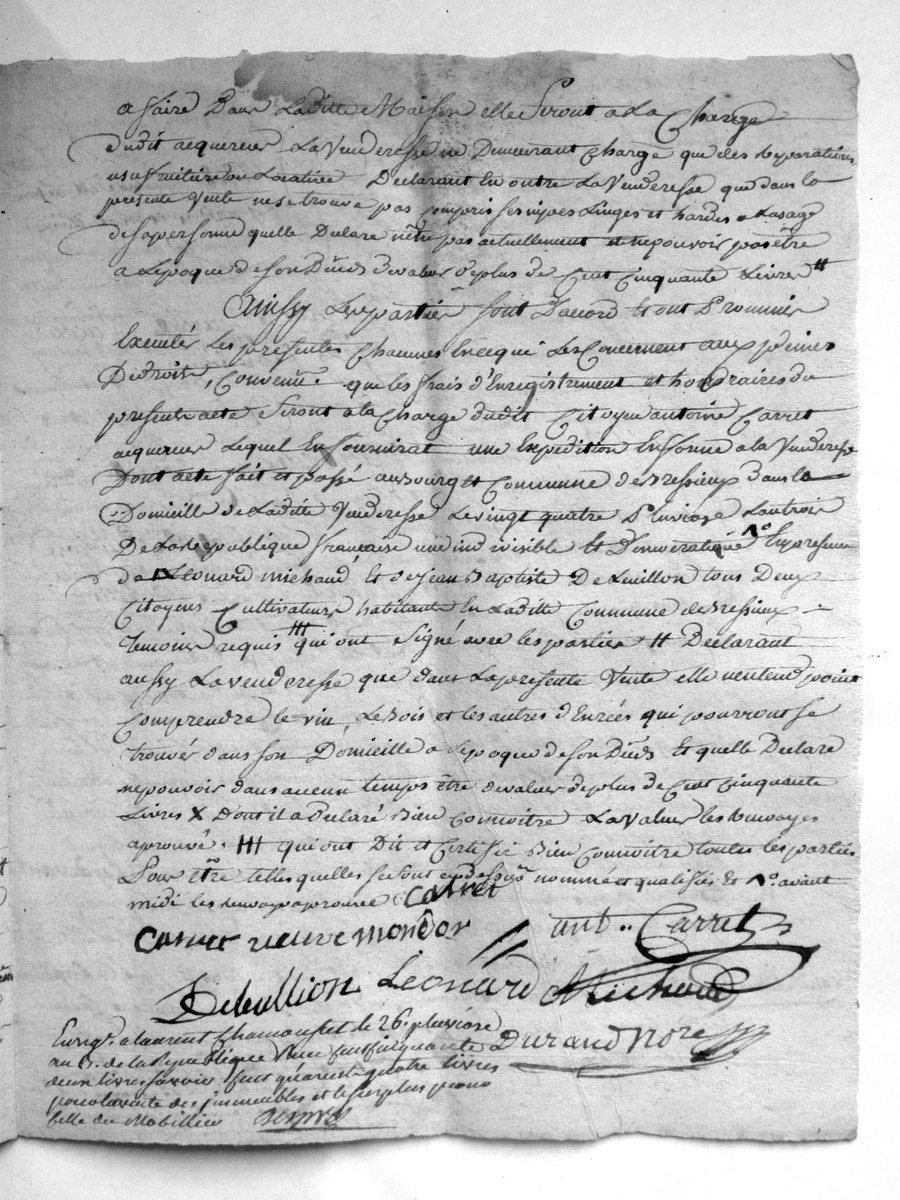 a faire Dans Laditte Maison elle Seront a La Charge
dudit acquereur La Venderesse ne Demeurant Chargé que des Reparations
usufruitiere ou Locative Declarant En outre La Venderesse que dans la
présente Vente ne se trouve pas Compris ses nipes Linges et hardes a Lusage
de sa personne quelle Declare nêtre pas actuellement et ne pouvoir pas être
a Lepoque de son Dèces de valeur de plus de Cent Cinquante Livres #
Ainssy Les partier sont Daccord Et ont Prommis
Executér Les presentes Chacunes En ce qui Les Concernent aux peines
De droits, Convenu que les frais d'Enregistrement et honoraires du
present acte Seront a la Charge dudit Citoyen antoine Carret
acquereur Lequel En fournirat une Expedition En forme a la Venderesse
Dont acte fait et passé au bourg et Commune de Bressieux dans le
Domicille de Laditte Venderesse Le vingt quatre Pluviose Lan trois
De La Republique française une indivisible Et Democratique № En presence
de Léonard michaud Et de Jean Baptiste Debuillon tous Deux
Citoyens Cultivateurs habitants En Laditte Commune de Bressieux
temoins requis ### qui ont Signé avec les partier # Declarant
aussy La venderesse que dans La presente Vente elle n'entend point
Comprendre le vin, Le Bois et les autres d'Enrées qui pourront se
trouvér dans son Domicille a Lepoque de son Dèces Et quelle Declare
ne pouvoir dans aucun temps être de valeur de plus de Cent Cinquante
Livres X dont il a Declaré Bien Connoitre La Valeur les Renvoyes
aprouvé. ### qui ont Dit et Certifié Bien Connoitre toutes les parties
Pour être telles quelles se sont cy dessus nommé et qualifiés Et №. avant
midi les Renvoys aprouvé Carret
veuve mondor ant.. Carret
Debullion Leonard Michaud
Enrég. a Laurent Chamousset le 26 pluviose
au 3. de la Republique a Durand Nore
deux livres savoir quarente quatre livres
pour la vente des immeubles et le surplus pour
celle du Mobillier